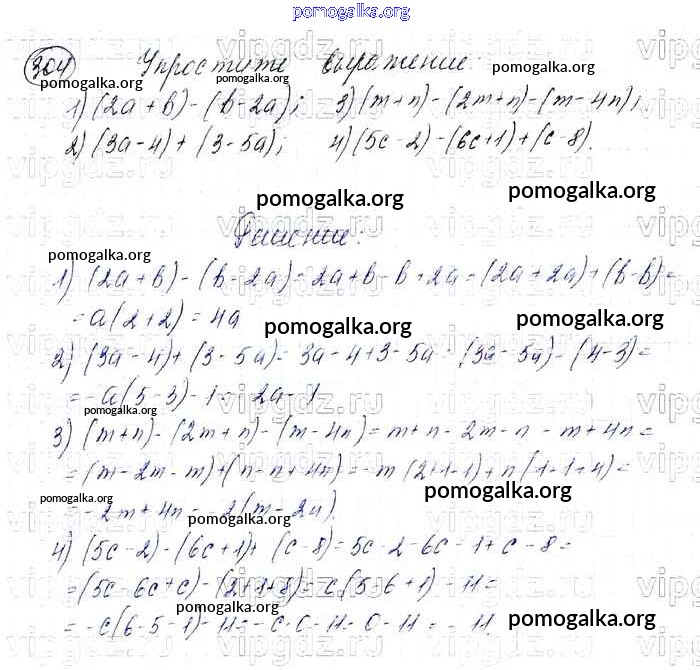 pomogalka.org
304 Упростите выражение:
pomogalka.org pomogalka.org
1) (2a+b)-(b-2a); 3) (m+n)-(2m+n)-(m-4n);
2) (3a-4)+(3-5a); 4) (5c-2)-(6c+1)+(c-8).
pomogalka.org pomogalka.org
Решение:
pomogalka.org
1) (2a+b)-(b-2a)=2a+b-b+2a=(2a+2a)+(b-b)=
=a(2+2)=4a
pomogalka.org pomogalka.org
2) (3a-4)+(3-5a)=3a-4+3-5a=(3a-5a)-(4-3)=
=-a(5-3)-1=-2a-1
pomogalka.org
3) (m+n)-(2m+n)-(m-4n)=m+n-2m-n-m+4n=
=(m-2m-m)+(n-n+4n)=-m(2+1-1)+n(1-1+4)=
pomogalka.org pomogalka.org
=-2m+4n=-2(m-2n).
4) (5c-2)-(6c+1)+(c-8)=5c-2-6c-1+c-8=
=(5c-6c+c)-(2+1+8)=c(5-6+1)-11=
pomogalka.org
=-c(6-5-1)-11=-c·0-11=0-11=-11.
pomogalka.org